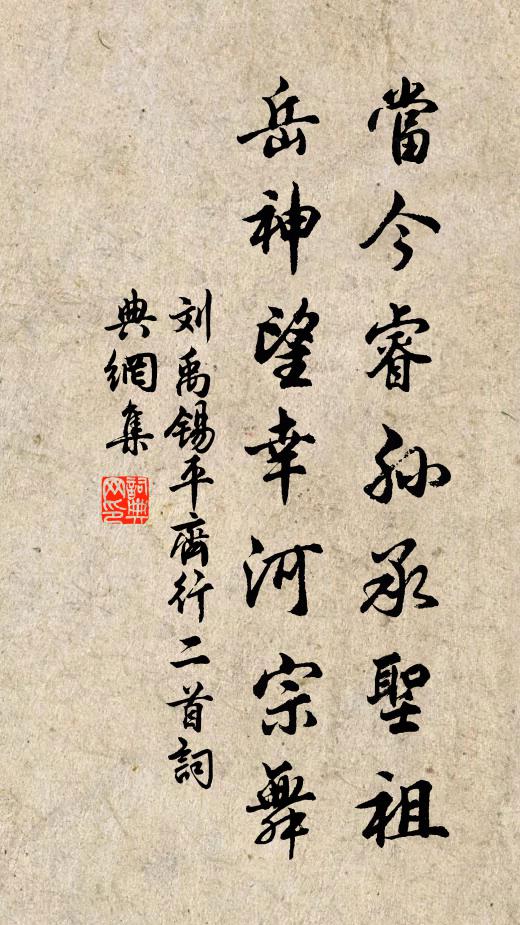 當今睿孫承聖祖
岳神望幸河宗舞
刘禹锡平齊行二首詞
典網集
詞典
网印